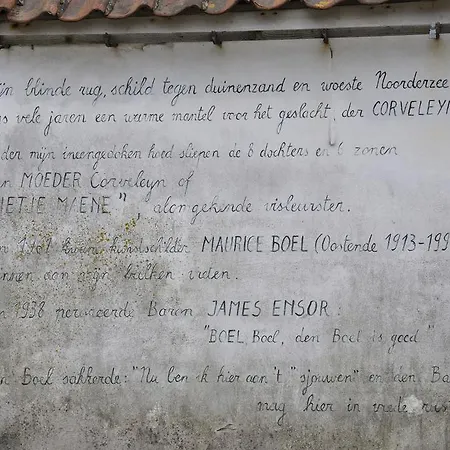 ijn blinde rug, schild tegen duinenzand en woeste Noorderzee
s vele jaren een warme mantel voor het geslacht, der CORVELEYN
der mijn ineengedoken hoed sliepen de 8 dochters en 6 zonen
n MOEDER Corveleyn of
IETJE MAENE", alomgekende visleurster.
n 19 1 kunstschilder MAURICE BOEL (Oostende 1913-199
nnen aan mijn balken vielen.
n 1938 Baron JAMES ENSOR:
"BOEL Boel, den Boel is goed"
n Boel sakkerde: "Nu ben ik hier aan 't "sjouwen" en den Ba
mag hier in vrede rus